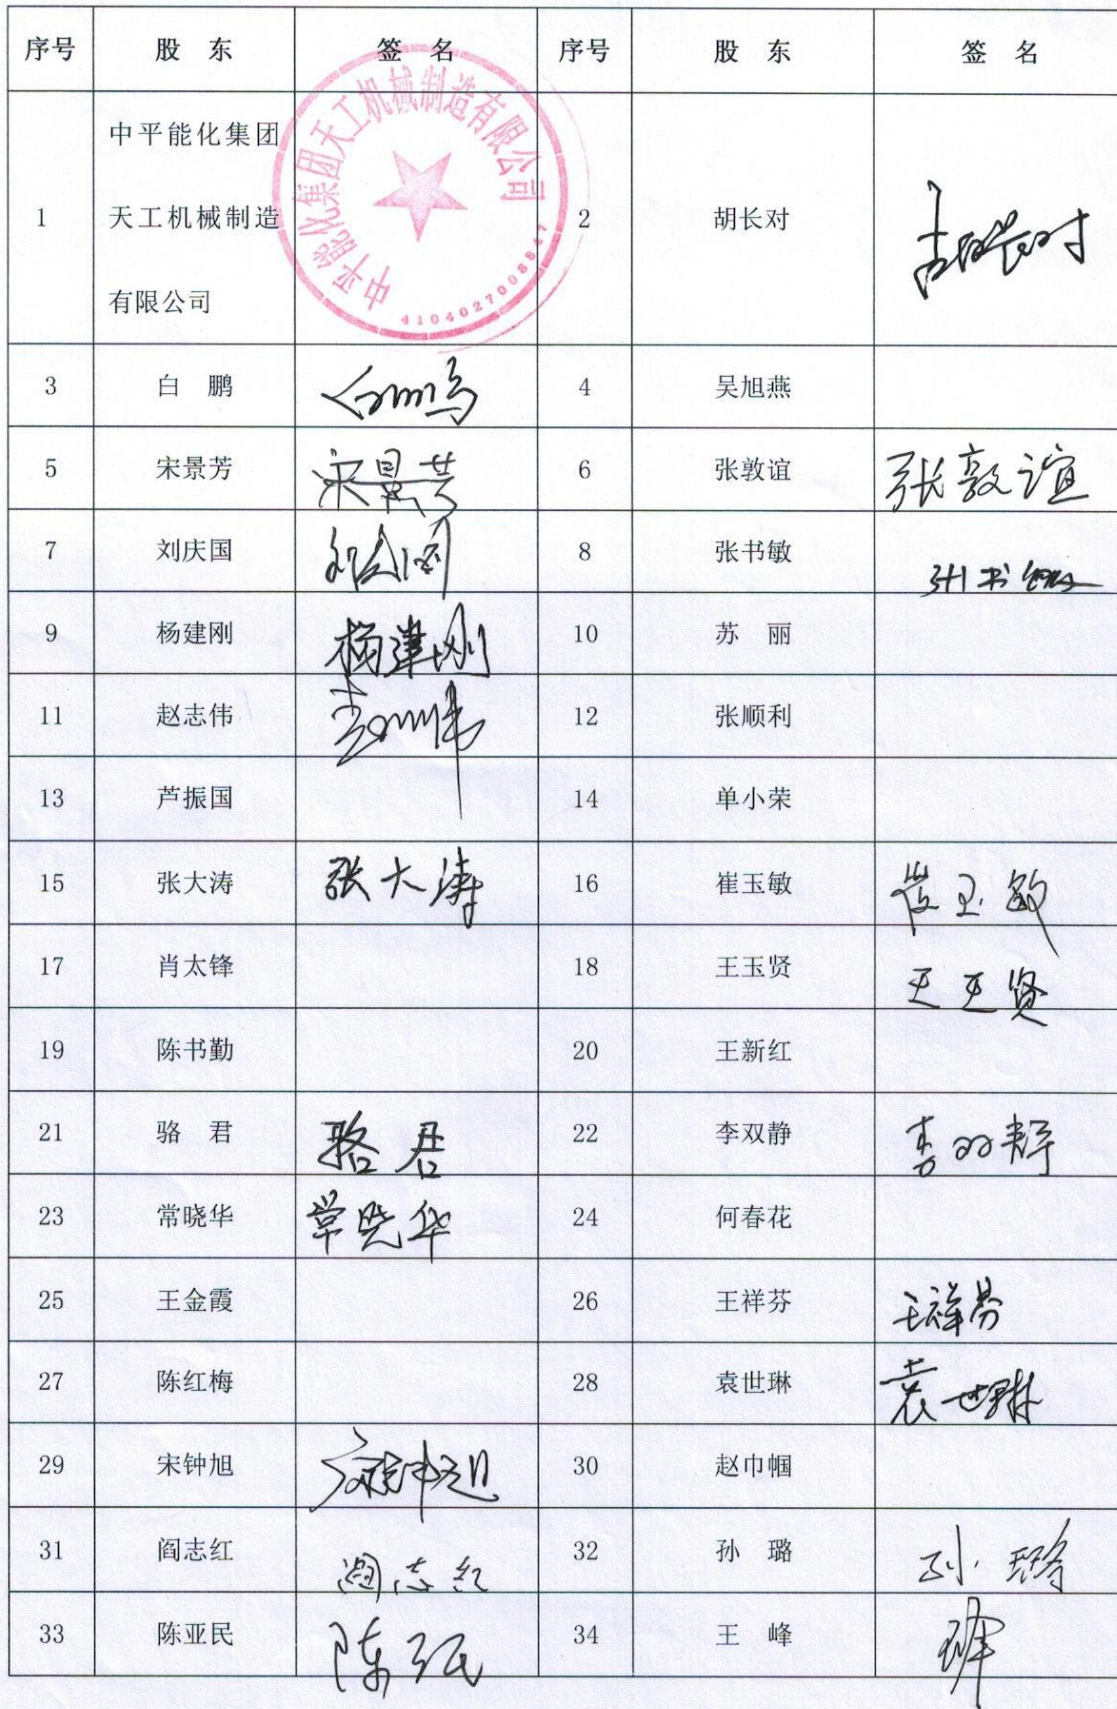 序号 股 东 签 名 序号 股 东 签 名
1 中平能化集团
天工机械制造
有限公司
中平能化集团天工机械制造有限公司
4104027008847
2 胡长对 胡长对
3 白 鹏 白鹏 4 吴旭燕
5 宋景芳 宋景芳 6 张敦谊 张敦谊
7 刘庆国 刘庆国 8 张书敏 张书敏
9 杨建刚 杨建刚 10 苏 丽
11 赵志伟 赵志伟 12 张顺利
13 芦振国 14 单小荣
15 张大涛 张大涛 16 崔玉敏 崔玉敏
17 肖太锋 18 王玉贤 王玉贤
19 陈书勤 20 王新红
21 骆 君 骆君 22 李双静 李双静
23 常晓华 常晓华 24 何春花
25 王金霞 26 王祥芬 王祥芬
27 陈红梅 28 袁世琳 袁世琳
29 宋钟旭 宋钟旭 30 赵巾帼
31 阎志红 阎志红 32 孙 璐 孙璐
33 陈亚民 陈亚民 34 王 峰 王峰